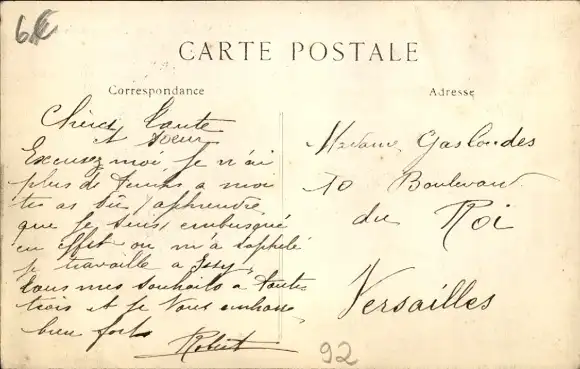 6
CARTE POSTALE
Correspondance
Adresse
Chères Tante
et Soeur
Excusez moi, je n'ai
plus de temps a moi
as dû apprendre
que je suis embusqué
en effet on m'a
je travaille a Issy,
tous mes souhaits a toutes
trois et je vous embrasse
bien fort
Robert
Madame Gaslondes
10 Boulevard
du Roi
Versailles
92